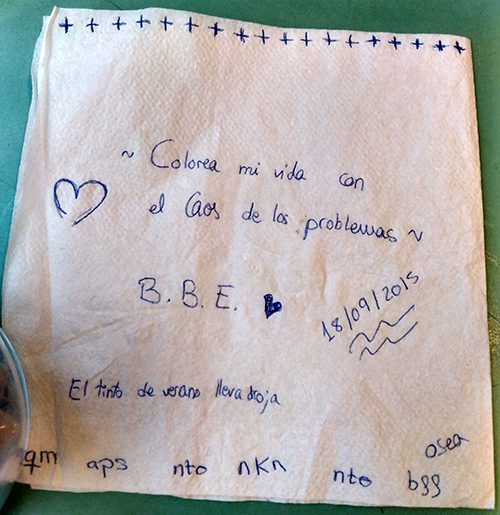 + + + + + + + + + + + + + + + + + + +
~ Colorea mi vida con
el Caos de los problemas ~
B. B. E.
18/09/2015
El tinto de verano lleva droja
osea
qm aps nto nkn nto bss